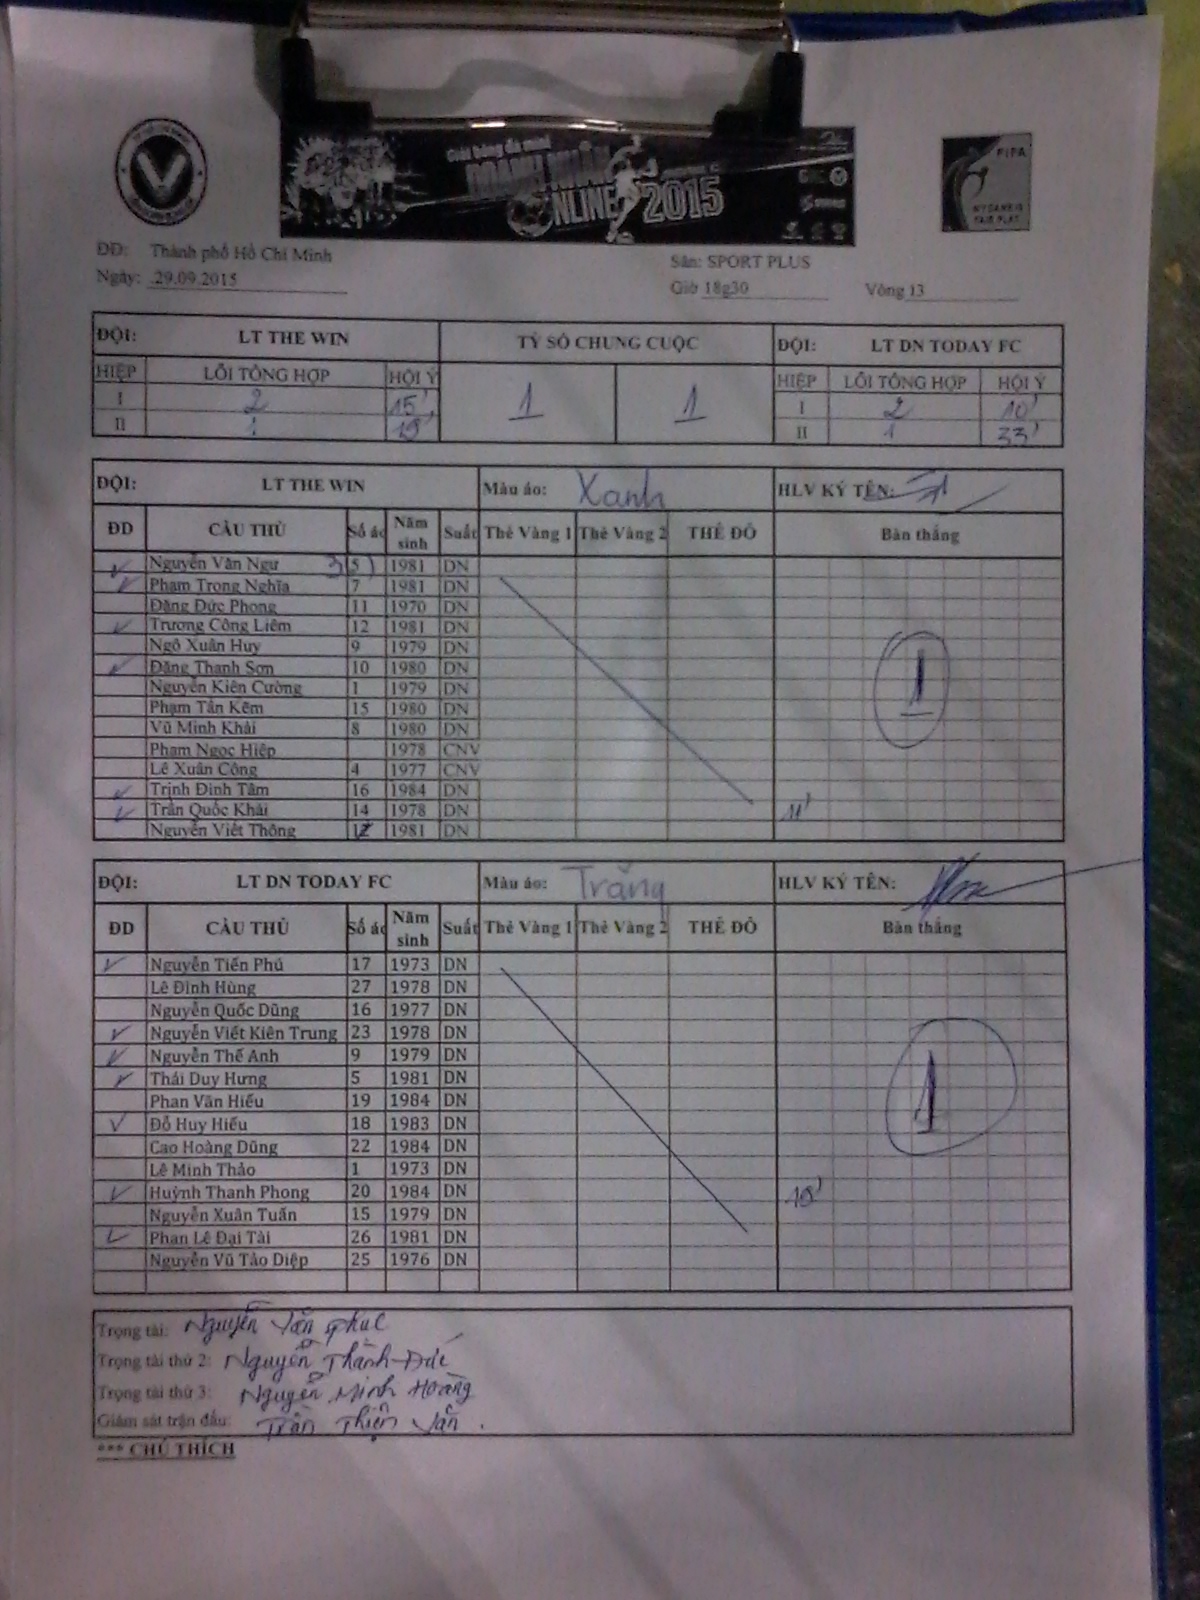 Giải bóng đá mini
DOANH NHÂN
ONLINE 2015
FIFA
MY GAME IS
FAIR PLAY
ĐĐ: Thành phố Hồ Chí Minh
Sân: SPORT PLUS
Ngày: 29.09.2015 Giờ 18g30 Vòng 13
ĐỘI: LT THE WIN TỶ SỐ CHUNG CUỘC ĐỘI: LT DN TODAY FC
HIỆP LỖI TỔNG HỢP HỘI Ý HIỆP LỖI TỔNG HỢP HỘI Ý
I 2 15' 1 1 I 2 10'
II 1 19' II 1 33'
ĐỘI: LT THE WIN Màu áo: Xanh HLV KÝ TÊN:
ĐD CẦU THỦ Số áo Năm sinh Suất Thẻ Vàng 1 Thẻ Vàng 2 THẺ ĐỎ Bàn thắng
Nguyễn Văn Ngư 3(5) 1981 DN
Phạm Trọng Nghĩa 7 1981 DN
Đặng Đức Phong 11 1970 DN
Trương Công Liêm 12 1981 DN
Ngô Xuân Huy 9 1979 DN
Đặng Thanh Sơn 10 1980 DN
Nguyễn Kiên Cường 1 1979 DN
1
Phạm Tấn Kẽm 15 1980 DN
Vũ Minh Khải 8 1980 DN
Phạm Ngọc Hiệp 1978 CNV
Lê Xuân Công 4 1977 CNV
Trịnh Đình Tâm 16 1984 DN
Trần Quốc Khải 14 1978 DN 11'
Nguyễn Viết Thông 17 1981 DN
ĐỘI: LT DN TODAY FC Màu áo: Trắng HLV KÝ TÊN:
ĐD CẦU THỦ Số áo Năm sinh Suất Thẻ Vàng 1 Thẻ Vàng 2 THẺ ĐỎ Bàn thắng
Nguyễn Tiến Phú 17 1973 DN
Lê Đình Hùng 27 1978 DN
Nguyễn Quốc Dũng 16 1977 DN
Nguyễn Viết Kiên Trung 23 1978 DN
Nguyễn Thế Anh 9 1979 DN
Thái Duy Hưng 5 1981 DN
1
Phan Văn Hiếu 19 1984 DN
Đỗ Huy Hiếu 18 1983 DN
Cao Hoàng Dũng 22 1984 DN
Lê Minh Thảo 1 1973 DN
Huỳnh Thanh Phong 20 1984 DN 18'
Nguyễn Xuân Tuấn 15 1979 DN
Phan Lê Đại Tài 26 1981 DN
Nguyễn Vũ Tảo Diệp 25 1976 DN
Trọng tài: Nguyễn Văn Phúc
Trọng tài thứ 2: Nguyễn Thành Đức
Trọng tài thứ 3: Nguyễn Minh Hoàng
Giám sát trận đấu: Trần Thiện Văn.
*** CHÚ THÍCH